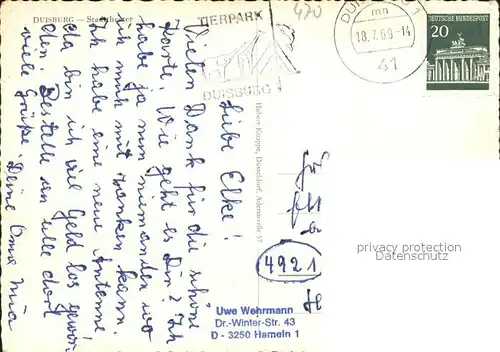 DUISBURG – Stadttheater
Liebe Elke!
Vielen Dank für die schöne
Karte. Wie geht es Dir? Ich
habe ja nun niemanden wo
ich mich mit zanken kann.
Ich habe eine neue Antenne
da bin ich viel Geld los gewor
den Bestelle an alle dort
viele Grüße Deine Oma Mia
TIERPARK
DUISBURG
470
18.7.69-14
mn
41
DEUTSCHE BUNDESPOST
20
Hubert Knappe, Düsseldorf, Adersstraße 57
4921
privacy protection
Datenschutz
Uwe Wehrmann
Dr.-Winter-Str. 43
D - 3250 Hameln 1